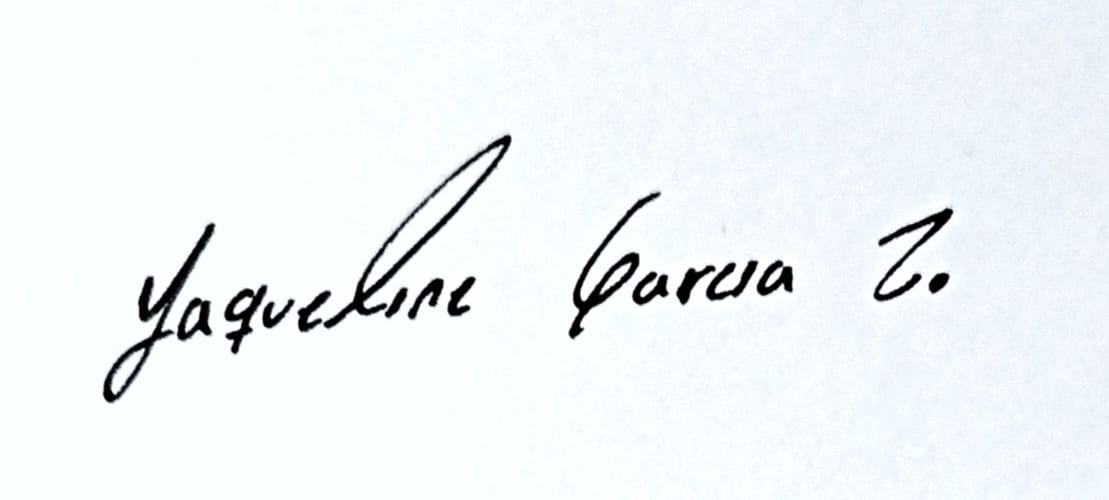 Yaqueline Garcia Z.